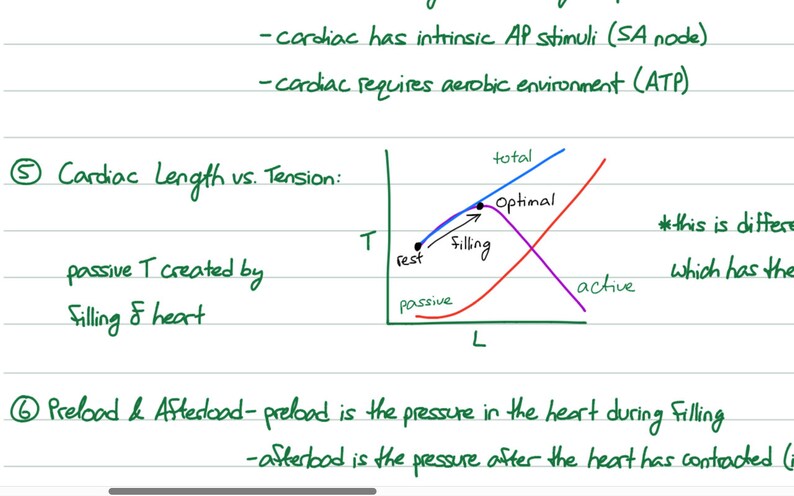 - cardiac has intrinsic AP stimuli (SA node)
- cardiac requires aerobic environment (ATP)
⑤ Cardiac Length vs. Tension:
total
optimal
T
filling
rest
*this is differe
passive T created by
which has the
passive
active
filling of heart
L
⑥ Preload & Afterload - preload is the pressure in the heart during filling
- afterload is the pressure after the heart has contracted (i